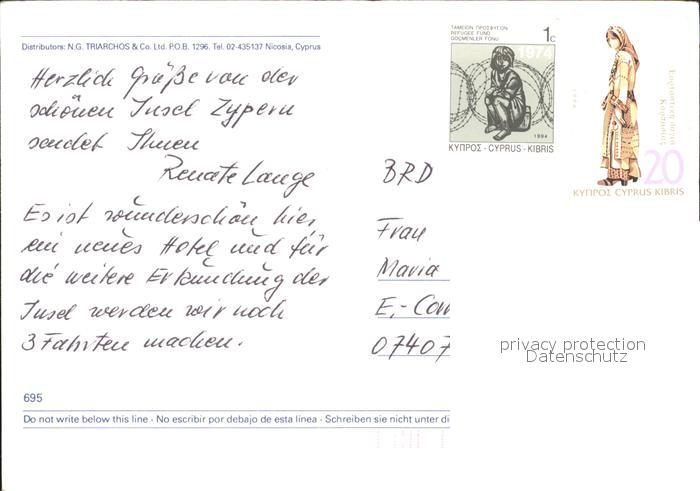 Distributors: N.G. TRIARCHOS & Co. Ltd. P.O.B. 1296. Tel. 02-435137 Nicosia, Cyprus
Herzlich Grüße von der
schönen Insel Zypern
sendet Ihnen
Renate Lange
Es ist wunderschön hier,
ein neues Hotel und für
die weitere Erkundung der
Insel werden wir noch
3 Fahrten machen.
ΤΑΜΕΙΟΝ ΠΡΟΣΦΥΓΩΝ
REFUGEE FUND
GÖÇMENLER FONU
1c
1974
1994
ΚΥΠΡΟΣ - CYPRUS - KIBRIS
1994
Καρπασίας
20
ΚΥΠΡΟΣ CYPRUS KIBRIS
BRD
Frau
Maria
E.-Com
07407
privacy protection
Datenschutz
695
Do not write below this line - No escribir por debajo de esta línea - Schreiben sie nicht unter di